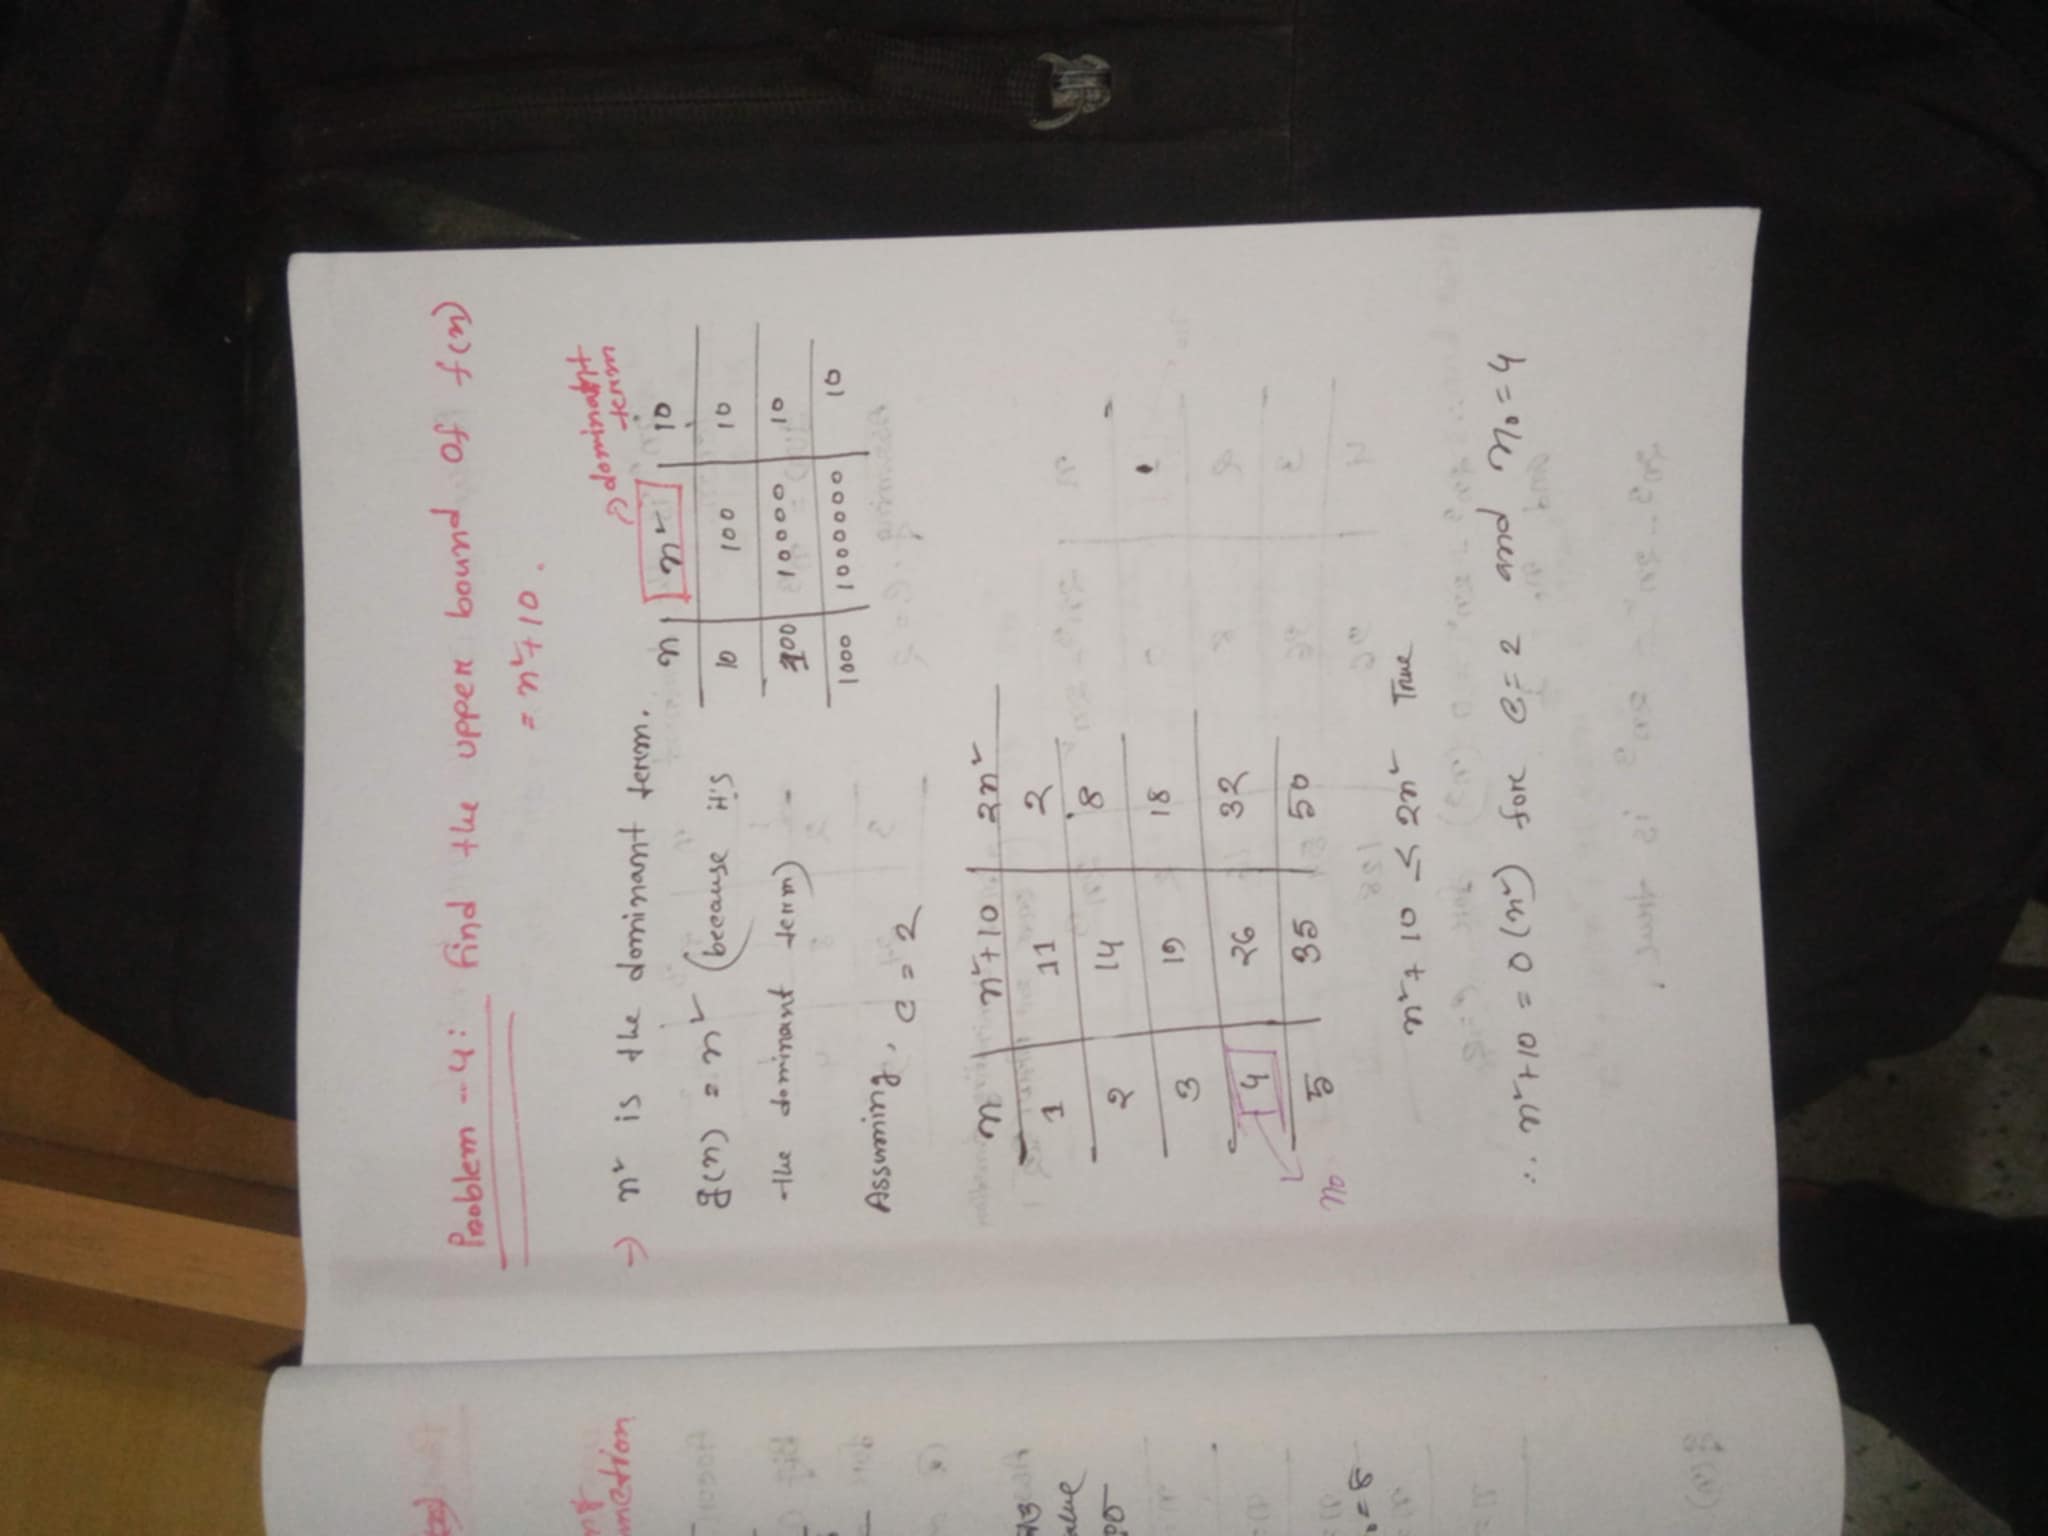 Problem - 4: find the upper bound of f(n)
= n²+10.
→ n² is the dominant term.
g(n) = n² (because it's
the dominant term)
dominant
term
n | n² | 10
10 | 100 | 10
100 | 10000 | 10
1000 | 1000000 | 10
Assuming, c = 2
n | n²+10 | 2n²
1 | 11 | 2
2 | 14 | 8
3 | 19 | 18
4 | 26 | 32
5 | 35 | 50
n₀
n²+ 10 ≤ 2n² True
∴ n²+10 = O(n²) fore c=2 and n₀=4
nction
alue
=8